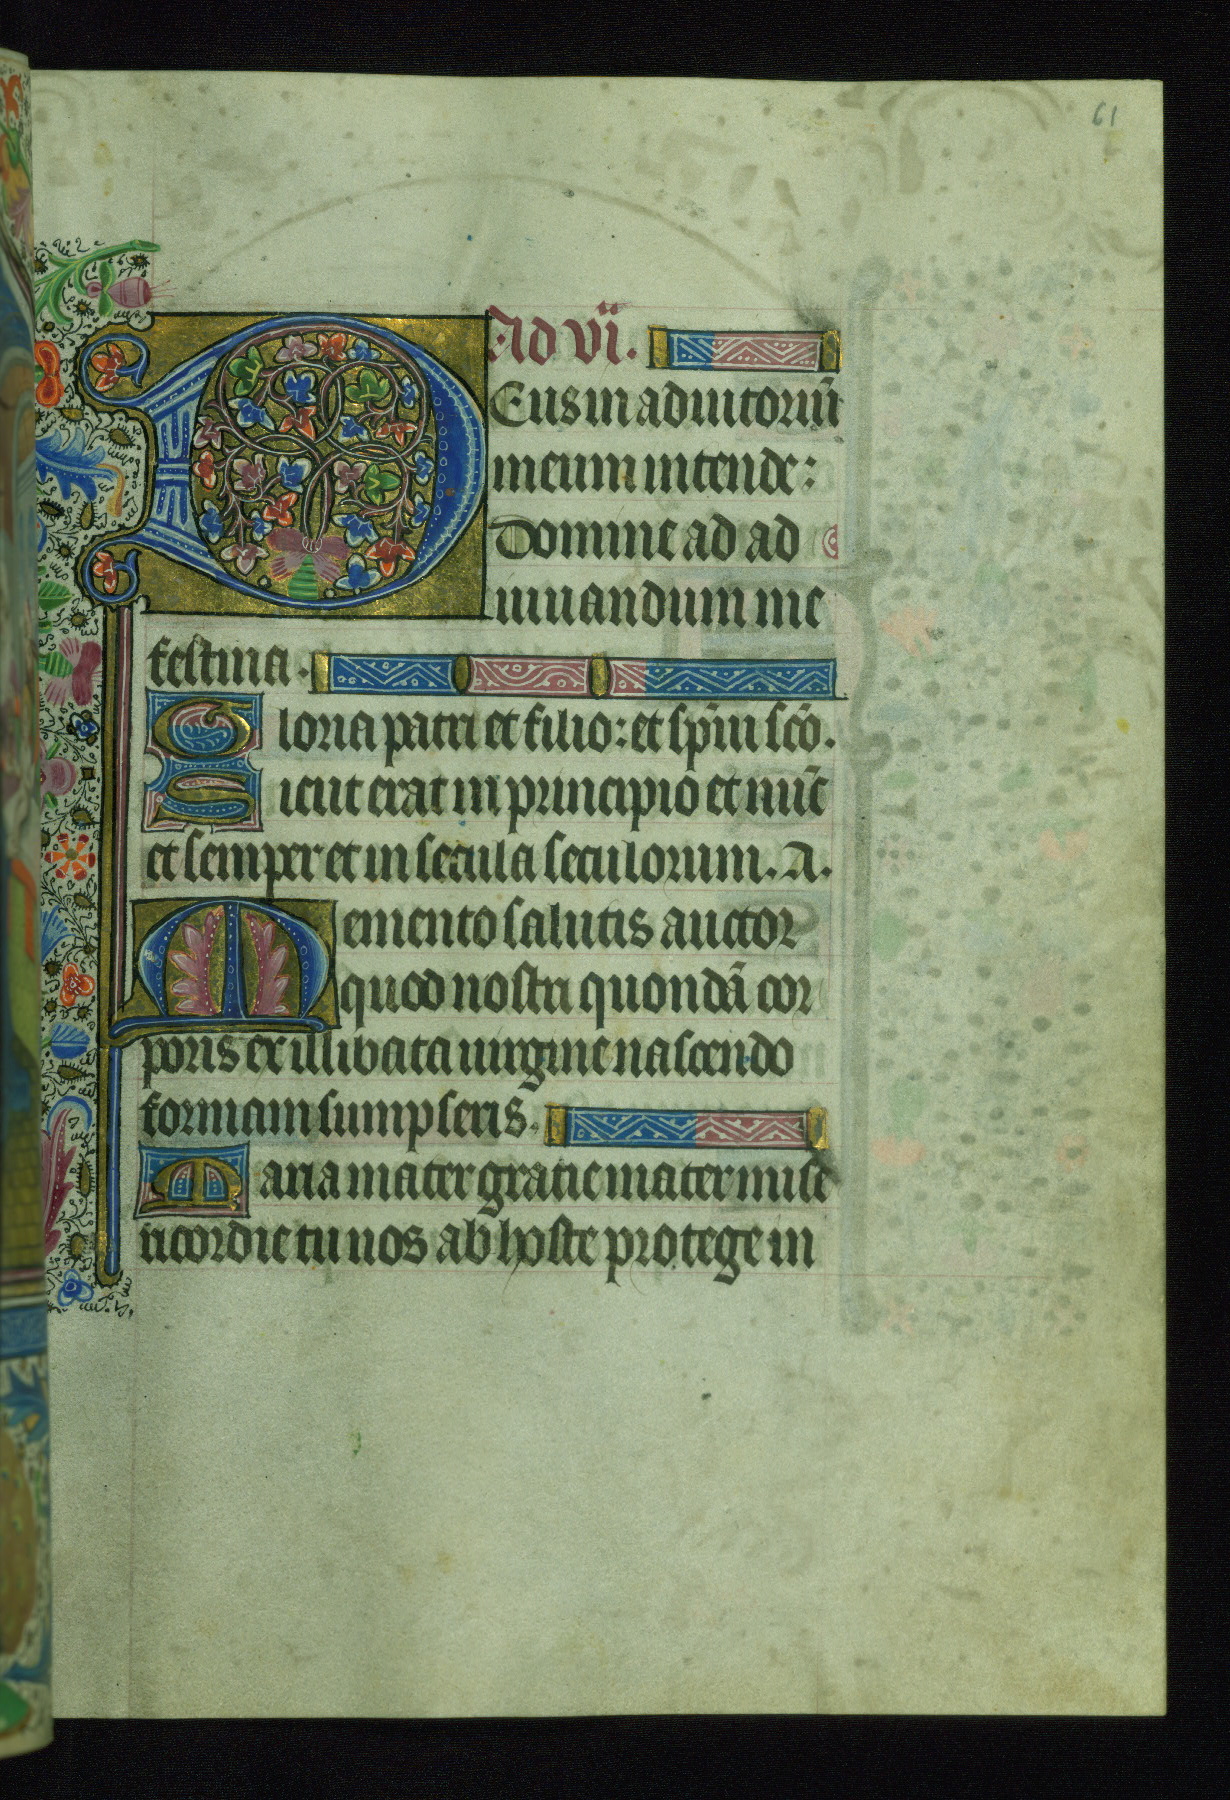 61
Ad vi.
DEus in adiutoriū
meum intende:
Domine ad ad
iuuandum me
festina.
Gloria patri et filio: et sp̄iu sc̄o.
Sicut erat in principio et nūc
et semper et in secula seculorum. A.
Memento salutis auctor
quod nostri quondā cor
poris ex illibata uirgine nascendo
formam sumpseris.
Maria mater gratie mater mise
ricordie tu nos ab hoste protege in